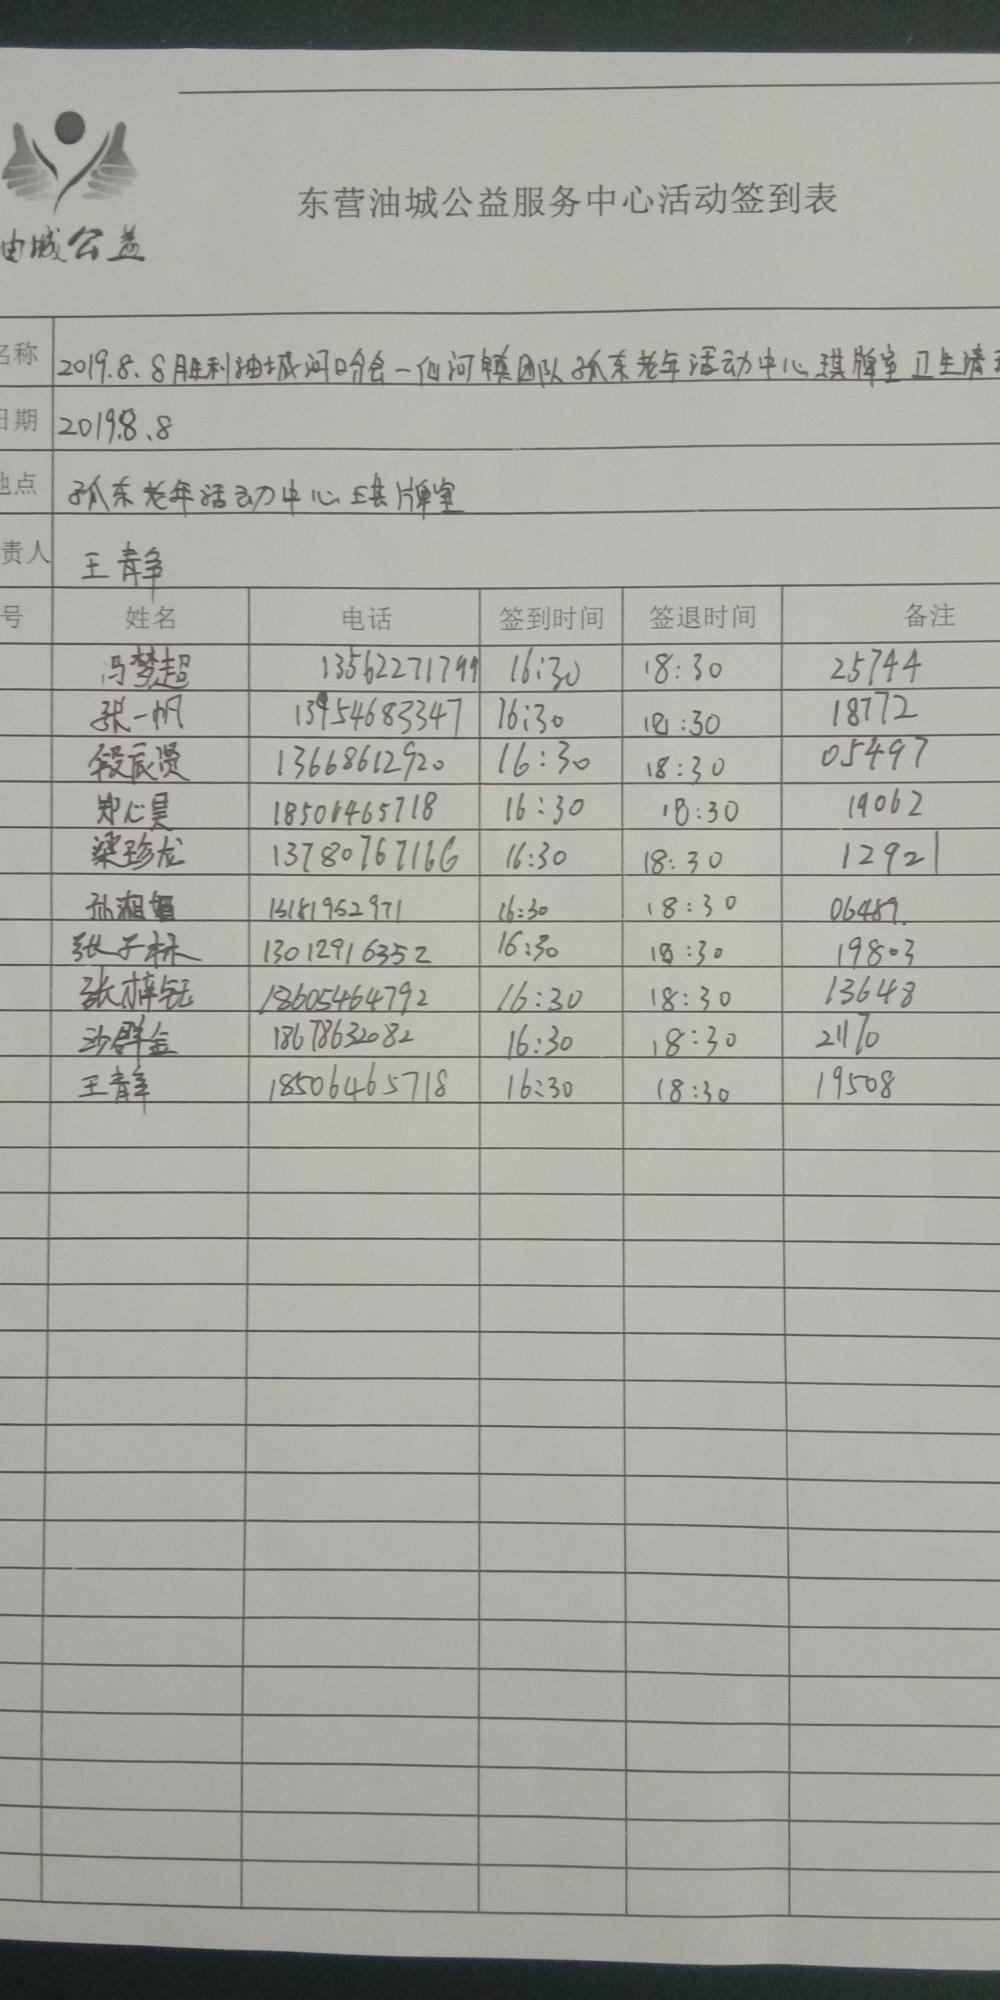 东营油城公益服务中心活动签到表
油城公益
名称 2019.8.8胜利油城河口分会一仙河镇团队孤东老年活动中心琪牌室卫生清
日期 2019.8.8
地点 孤东老年活动中心琪牌室
责人 王青争
号 姓名 电话 签到时间 签退时间 备注
冯梦超 13562271799 16:30 18:30 25744
张一帆 13954683347 16:30 18:30 18772
段辰贤 13668612920 16:30 18:30 05497
郑心昊 18506465718 16:30 18:30 19062
梁珍龙 13780767166 16:30 18:30 12921
孙湘 15181952971 16:30 18:30 06489.
张子林 13012916352 16:30 18:30 19803
张梓钰 18605464792 16:30 18:30 13648
沙群金 18678632082 16:30 18:30 21170
王青争 18506465718 16:30 18:30 19508